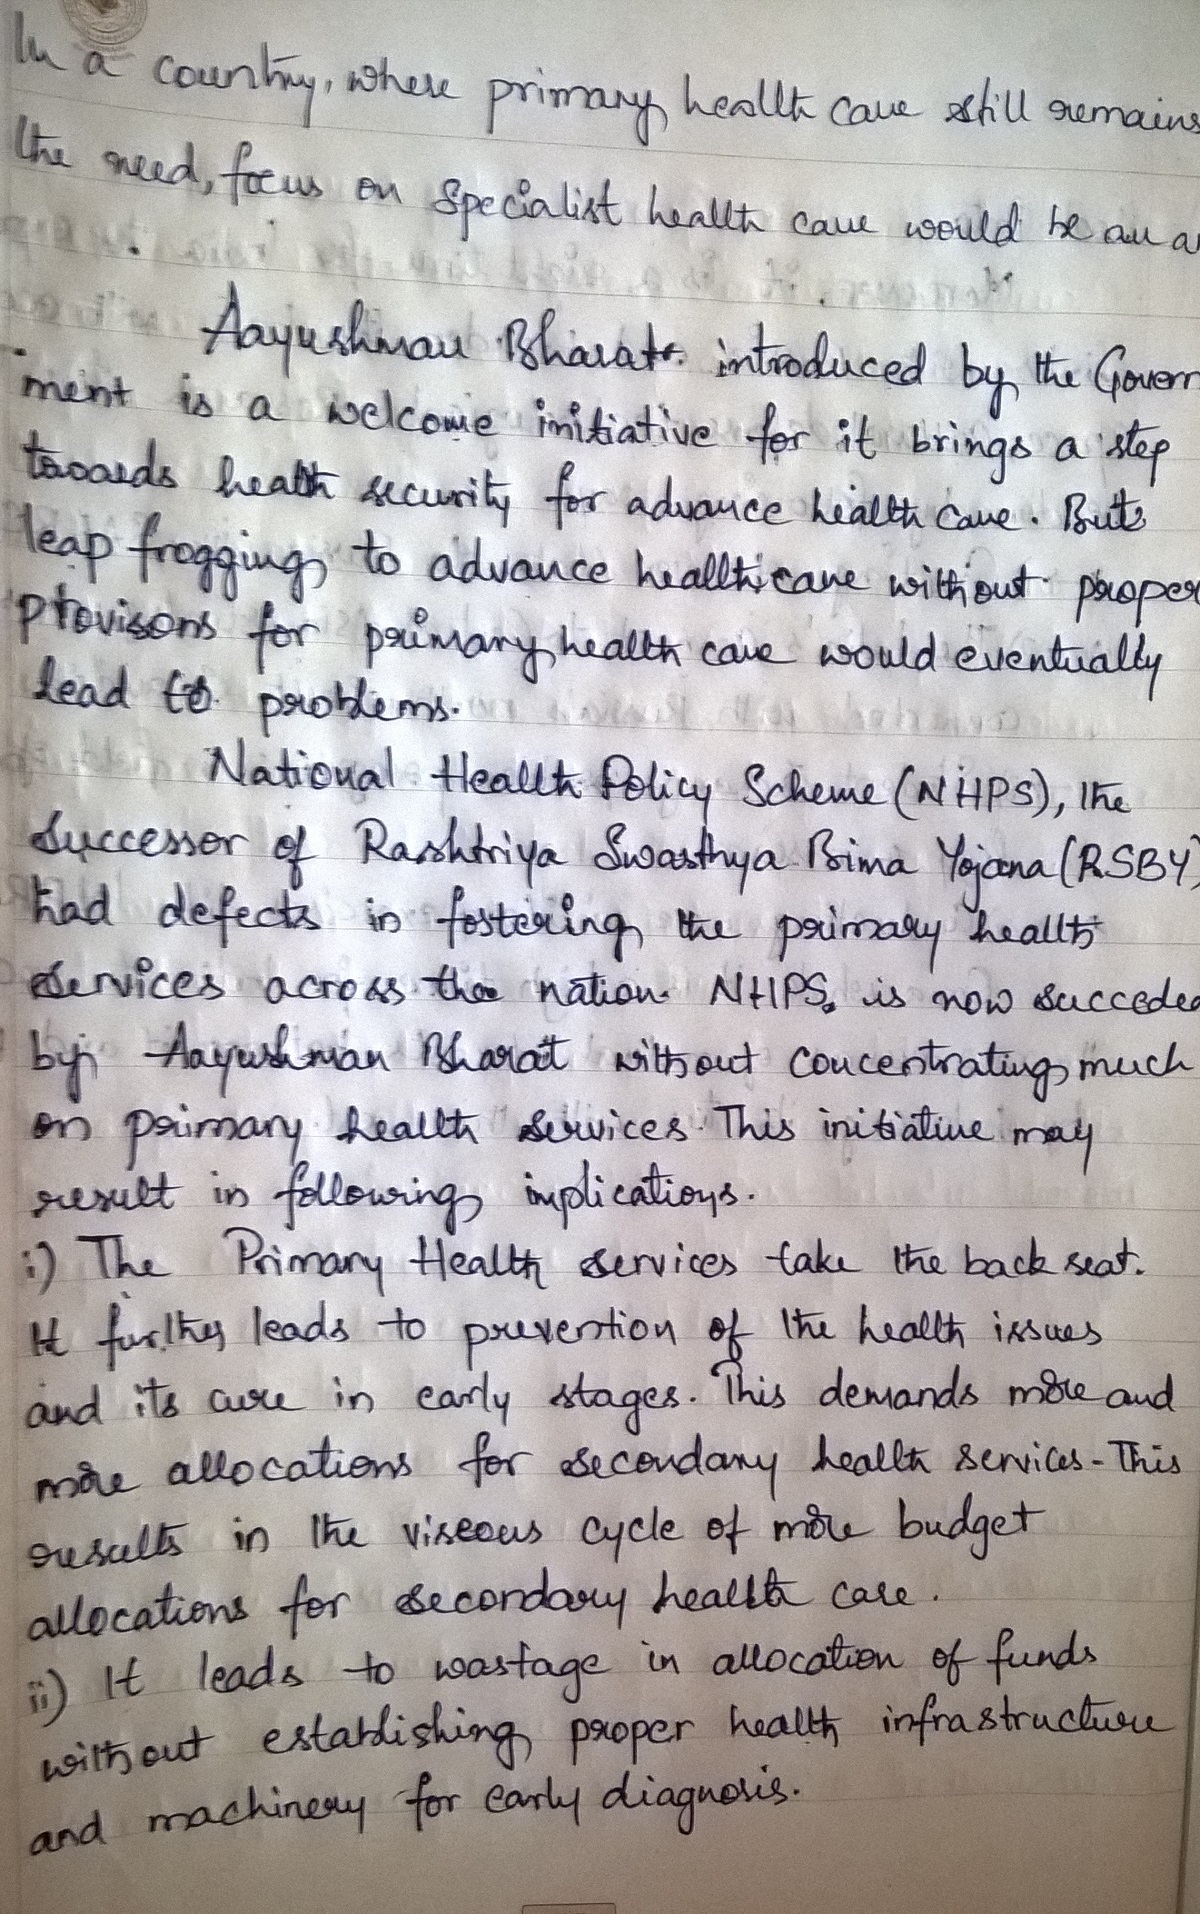 In a country, where primary health care still remains
the need, focus on specialist health care would be an
Aayushman Bharat introduced by the Govern
ment is a welcome initiative for it brings a step
towards health security for advance health care. But
leap frogging to advance healthcare without proper
provisons for primary health care would eventually
lead to problems.
National Health Policy Scheme (NHPS), the
successor of Rashtriya Swasthya Bima Yojana (RSBY)
had defects in fostering the primary health
services across the nation. NHPS. is now succeded
by Aayushman Bharat without concentrating much
on primary health services. This initiative may
result in following implications.
i) The Primary Health services take the back seat.
It further leads to prevention of the health issues
and its cure in early stages. This demands more and
more allocations for secondary health services. This
results in the viseous cycle of more budget
allocations for secondary health care.
ii) It leads to wastage in allocation of funds
without establishing proper health infrastructure
and machinery for early diagnosis.